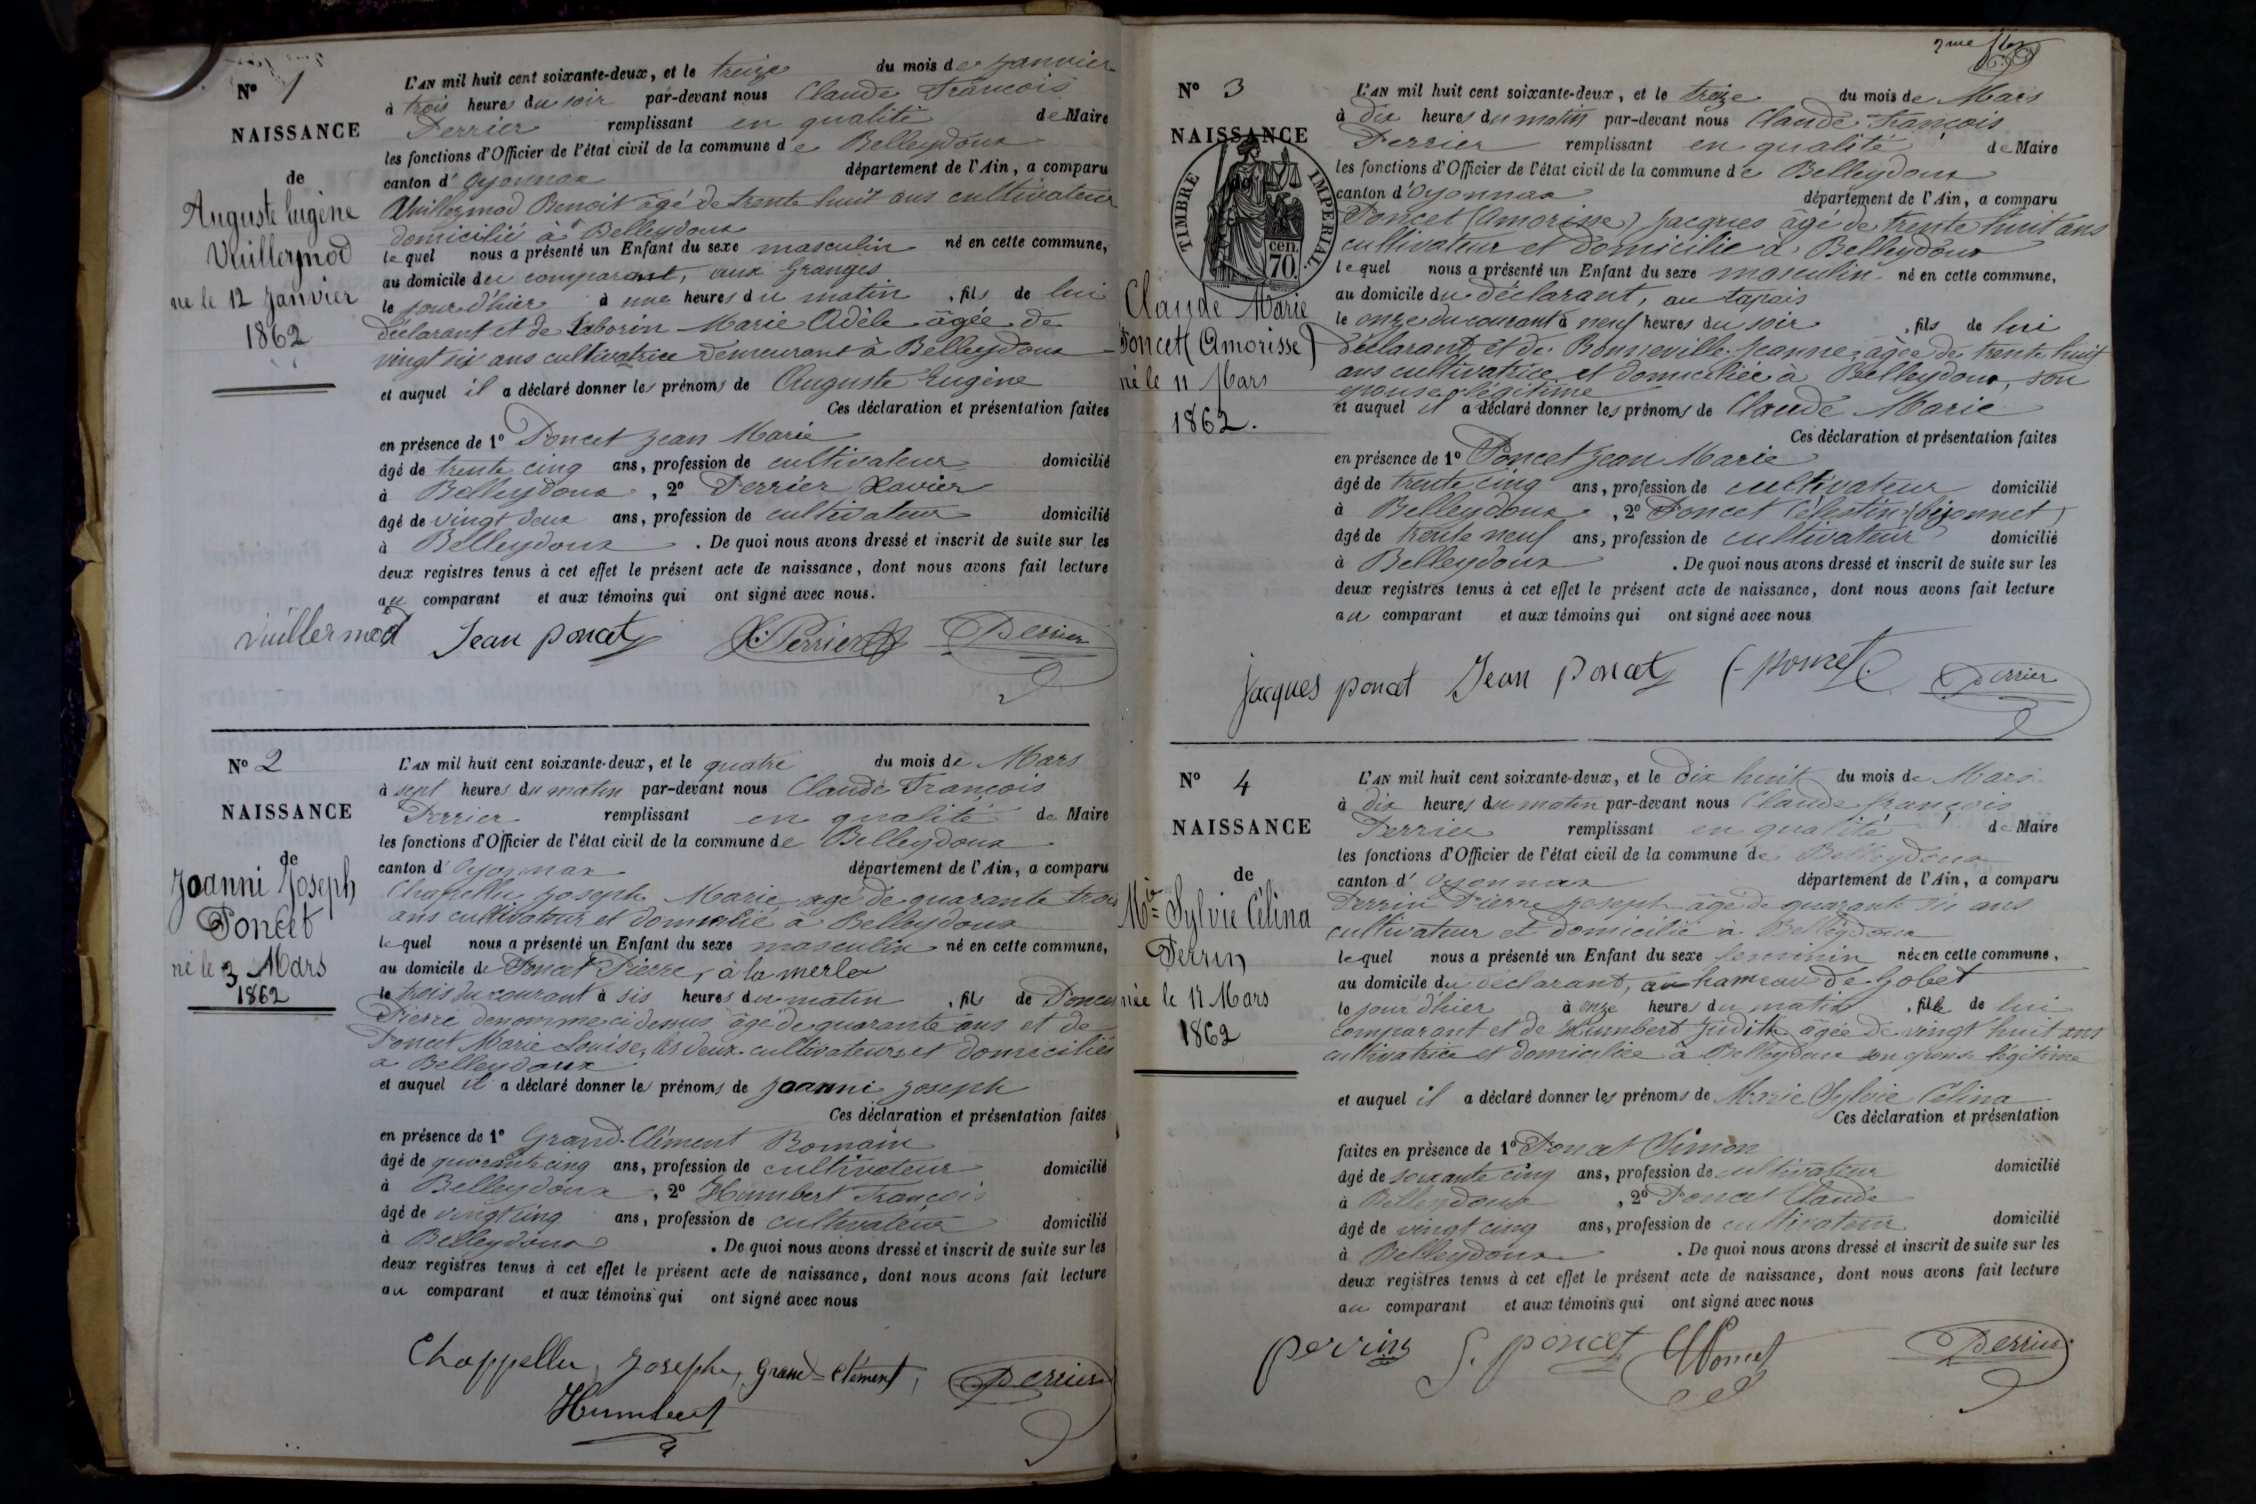 N° 1
NAISSANCE
de
Auguste Eugène
Vuillermod
né le 12 Janvier
1862
L'AN mil huit cent soixante-deux, et le treize du mois de Janvier
à trois heures du soir par-devant nous Claude François
Perrier remplissant en qualité de Maire
les fonctions d'Officier de l'état civil de la commune de Belleydoux
canton d'Oyonnax département de l'Ain, a comparu
Vuillermod Benoit âgé de trente huit ans cultivateur
domicilié à Belleydoux
lequel nous a présenté un Enfant du sexe masculin né en cette commune,
au domicile du comparant, aux Granges
le jour d'hier à une heures du matin, fils de lui
déclarant et de Laborin Marie Adèle âgée de
vingt six ans cultivatrice demeurant à Belleydoux
et auquel il a déclaré donner les prénoms de Auguste Eugène
Ces déclaration et présentation faites
en présence de 1° Poncet Jean Marie
âgé de trente cinq ans, profession de cultivateur domicilié
à Belleydoux, 2° Perrier Xavier
âgé de vingt deux ans, profession de cultivateur domicilié
à Belleydoux. De quoi nous avons dressé et inscrit de suite sur les
deux registres tenus à cet effet le présent acte de naissance, dont nous avons fait lecture
au comparant et aux témoins qui ont signé avec nous.
Vuillermod Jean poncet X. Perrier Perrier
N° 2
NAISSANCE
de
Joanni Joseph
Poncet
né le 3 Mars
1862
L'AN mil huit cent soixante-deux, et le quatre du mois de Mars
à sept heures du matin par-devant nous Claude François
Perrier remplissant en qualité de Maire
les fonctions d'Officier de l'état civil de la commune de Belleydoux
canton d'Oyonnax département de l'Ain, a comparu
Chapellu Joseph Marie agé de quarante trois
ans cultivateur et domicilié à Belleydoux
lequel nous a présenté un Enfant du sexe masculin né en cette commune,
au domicile de Poncet Pierre, à la merle
le trois du courant à six heures du matin, fils de Poncet
Pierre dénommé ci dessus âgé de quarante ans et de
Poncet Marie Louise, les deux cultivateurs et domiciliés
à Belleydoux
et auquel il a déclaré donner les prénoms de Joanni Joseph
Ces déclaration et présentation faites
en présence de 1° Grand-Clément Romain
âgé de quarante cinq ans, profession de cultivateur domicilié
à Belleydoux, 2° Humbert François
âgé de vingt cinq ans, profession de cultivateur domicilié
à Belleydoux. De quoi nous avons dressé et inscrit de suite sur les
deux registres tenus à cet effet le présent acte de naissance, dont nous avons fait lecture
au comparant et aux témoins qui ont signé avec nous
Chappellu Joseph, Grand-Clément, Perrier
Humbert
2me
N° 3
NAISSANCE
TIMBRE IMPERIAL
cen.
70.
Claude Marie
Poncet (Amorisse)
né le 11 Mars
1862.
L'AN mil huit cent soixante-deux, et le treize du mois de Mars
à dix heures du matin par-devant nous Claude François
Perrier remplissant en qualité de Maire
les fonctions d'Officier de l'état civil de la commune de Belleydoux
canton d'Oyonnax département de l'Ain, a comparu
Poncet (Amorisse) Jacques âgé de trente huit ans
cultivateur et domicilié à Belleydoux
lequel nous a présenté un Enfant du sexe masculin né en cette commune,
au domicile du déclarant, au tapais
le onze du courant à neuf heures du soir, fils de lui
déclarant et de Bonneville Jeanne âgée de trente huit
ans cultivatrice et domiciliée à Belleydoux, son
épouse légitime
et auquel il a déclaré donner les prénoms de Claude Marie
Ces déclaration et présentation faites
en présence de 1° Poncet Jean Marie
âgé de trente cinq ans, profession de cultivateur domicilié
à Belleydoux, 2° Poncet Célestin (bijonnet)
âgé de trente neuf ans, profession de cultivateur domicilié
à Belleydoux. De quoi nous avons dressé et inscrit de suite sur les
deux registres tenus à cet effet le présent acte de naissance, dont nous avons fait lecture
au comparant et aux témoins qui ont signé avec nous
Jacques poncet Jean poncet C poncet Perrier
N° 4
NAISSANCE
de
Mie Sylvie Célina
Perrin
née le 17 Mars
1862
L'AN mil huit cent soixante-deux, et le dix huit du mois de Mars
à dix heures du matin par-devant nous Claude François
Perrier remplissant en qualité de Maire
les fonctions d'Officier de l'état civil de la commune de Belleydoux
canton d'Oyonnax département de l'Ain, a comparu
Perrin Pierre Joseph âgé de quarante six ans
cultivateur et domicilié à Belleydoux
lequel nous a présenté un Enfant du sexe feminin née en cette commune,
au domicile du déclarant, au hameau de Gobet
le jour d'hier à onze heures du matin, fille de lui
comparant et de Humbert Judith âgée de vingt huit ans
cultivatrice et domiciliée à Belleydoux son épouse légitime
et auquel il a déclaré donner les prénoms de Marie Sylvie Célina
Ces déclaration et présentation
faites en présence de 1° Poncet Simon
âgé de soixante cinq ans, profession de cultivateur domicilié
à Belleydoux, 2° Poncet Claude
âgé de vingt cinq ans, profession de cultivateur domicilié
à Belleydoux. De quoi nous avons dressé et inscrit de suite sur les
deux registres tenus à cet effet le présent acte de naissance, dont nous avons fait lecture
au comparant et aux témoins qui ont signé avec nous
perrin S. poncet Poncet Perrier